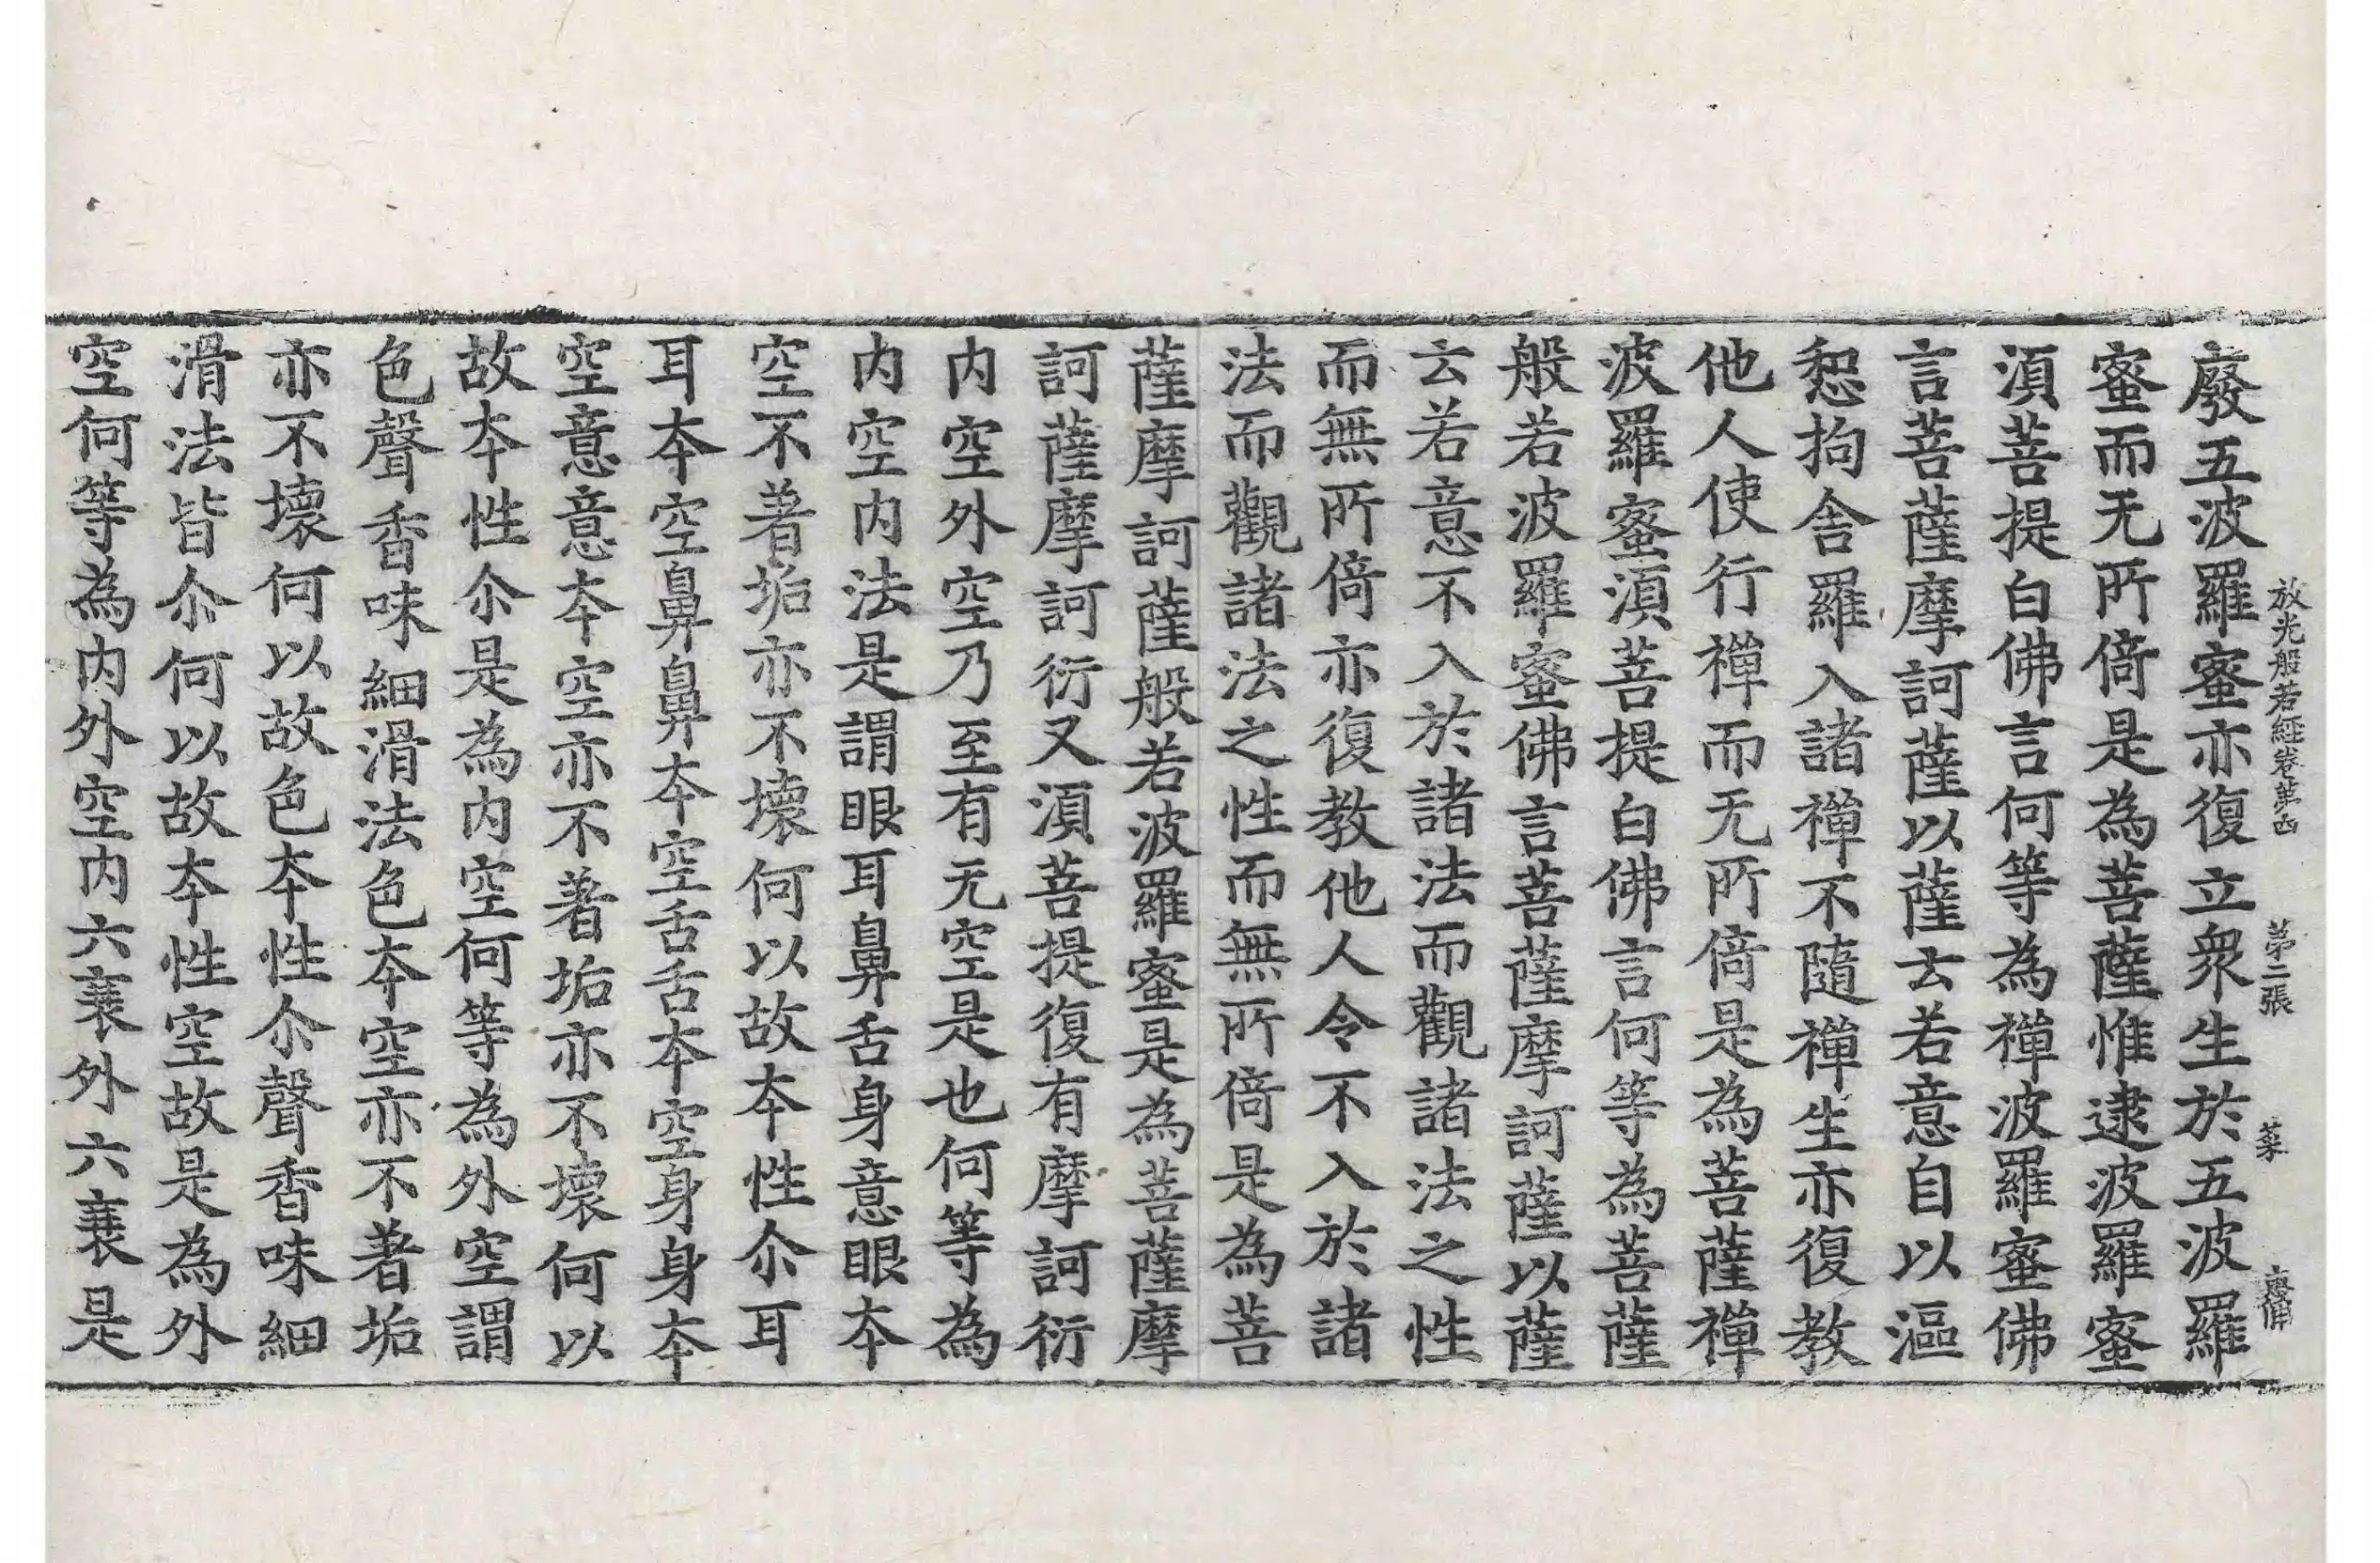 放光般若經卷第四　第二張　菜
廢五波羅蜜亦復立衆生於五波羅
蜜而无所倚是為菩薩惟逮波羅蜜
湏菩提白佛言何等為禪波羅蜜佛
言菩薩摩訶薩以薩云若意自以漚
惒拘舎羅入諸禪不隨禪生亦復教
他人使行禪而无所倚是為菩薩禪
波羅蜜湏菩提白佛言何等為菩薩
般若波羅蜜佛言菩薩摩訶薩以薩
云若意不入於諸法而觀諸法之性
而無所倚亦復教他人令不入於諸
法而觀諸法之性而無所倚是為菩
薩摩訶薩般若波羅蜜是為菩薩摩
訶薩摩訶衍又湏菩提復有摩訶衍
内空外空乃至有无空是也何等為
内空内法是謂眼耳鼻舌身意眼夲
空不著垢亦不壞何以故夲性尒耳
耳夲空鼻鼻夲空舌舌夲空身身夲
空意意夲空亦不著垢亦不壞何以
故夲性尒是為内空何等為外空謂
色聲香味細滑法色夲空亦不著垢
亦不壞何以故色夲性尒聲香味細
滑法皆尒何以故夲性空故是為外
空何等為内外空内六衰外六衰是